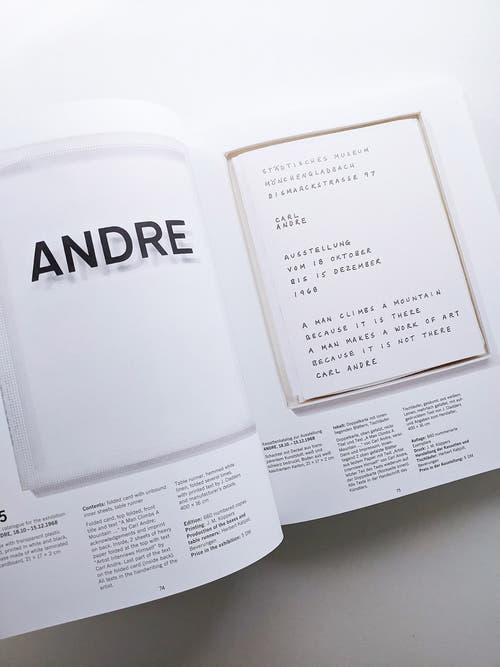 ANDRE
5
catalogue for the exhibition
ANDRE, 18.10 – 15.12.1968
with transparent plastic
printed in white and black,
made of white laminated
cardboard, 21 × 17 × 2 cm
Contents: folded card with unbound
inner sheets, table runner
Folded card, top folded, front
title and text "A Man Climbs A
Mountain —" by Carl Andre,
acknowledgements and imprint
on back, inside, 2 sheets of heavy
paper folded at the top with text
"Artist Interviews Himself" by
Carl Andre. Last part of the text
on the folded card (inside back).
All texts in the handwriting of the
artist.
Table runner: hemmed white
linen, folded several times,
with printed text by J. Dadders
and manufacturer's details.
400 × 16 cm
Edition: 660 numbered copies
Printing: J. M. Küppers
Production of the boxes and
table runners: Herbert Kaspit,
Beverungen
Price in the exhibition: 5 DM
74
STÄDTISCHES MUSEUM
MÖNCHENGLADBACH
BISMARCKSTRASSE 97
CARL
ANDRE
AUSSTELLUNG
VOM 18 OKTOBER
BIS 15 DEZEMBER
1968
A MAN CLIMBS A MOUNTAIN
BECAUSE IT IS THERE
A MAN MAKES A WORK OF ART
BECAUSE IT IS NOT THERE
CARL ANDRE
Kassettenkatalog zur Ausstellung
ANDRE, 18.10 – 15.12.1968
Schachtel mit Deckel aus trans-
parentem Kunststoff, weiß und
schwarz bedruckt, Boden aus weiß
kaschiertem Karton, 21 × 17 × 2 cm
Inhalt: Doppelkarte mit innen
liegenden Blättern, Tischläufer.
Doppelkarte, oben gefalzt, recto
Titel und Text „A Man Climbs A
Mountain —" von Carl Andre, verso
Dank und Impressum, innen:
2 oben gefalzte Blätter
Papier mit Text „Artist
Interviews Himself" von Carl Andre.
letzter Teil des Textes wiederum auf
der Doppelkarte (Rückseite innen).
Alle Texte in der Handschrift des
Künstlers.
Tischläufer, gesäumt, aus weißem
Leinen, mehrfach gefaltet, mit auf-
gedrucktem Text von J. Dadders
und Angaben vom Hersteller.
400 × 16 cm
Auflage: 660 nummerierte
Exemplare
Druck: J. M. Küppers
Herstellung der Kassetten und
Tischläufer: Herbert Kaspit,
Beverungen
Preis in der Ausstellung: 5 DM
75